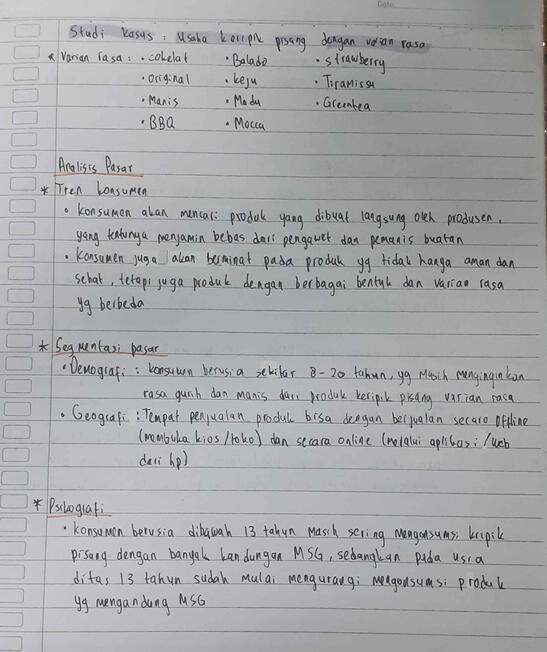 Date.
Studi kasus : Usaha keripik pisang dengan varian rasa
* Varian rasa : • cokelat • Balado • strawberry
• original • keju • Tiramissu
• Manis • Madu • Greentea
• BBQ • Mocca
Analisis Pasar
* Tren konsumen
• konsumen akan mencari produk yang dibuat langsung oleh produsen,
yang tentunya menjamin bebas dari pengawet dan pemanis buatan
• konsumen juga akan berminat pada produk yg tidak hanya aman dan
sehat, tetapi juga produk dengan berbagai bentuk dan varian rasa
yg berbeda
* Segmentasi pasar
• Demografi : konsumen berusia sekitar 8 - 20 tahun, yg masih menginginkan
rasa gurih dan manis dari produk keripik pisang varian rasa
• Geografi : Tempat penjualan produk bisa dengan berjualan secara offline
(membuka kios/toko) dan secara online (melalui aplikasi/web
dari hp)
* Psikografi
• konsumen berusia dibawah 13 tahun masih sering mengonsumsi kripik
pisang dengan banyak kandungan MSG, sedangkan pada usia
ditas 13 tahun sudah mulai mengurangi mengonsumsi produk
yg mengandung MSG